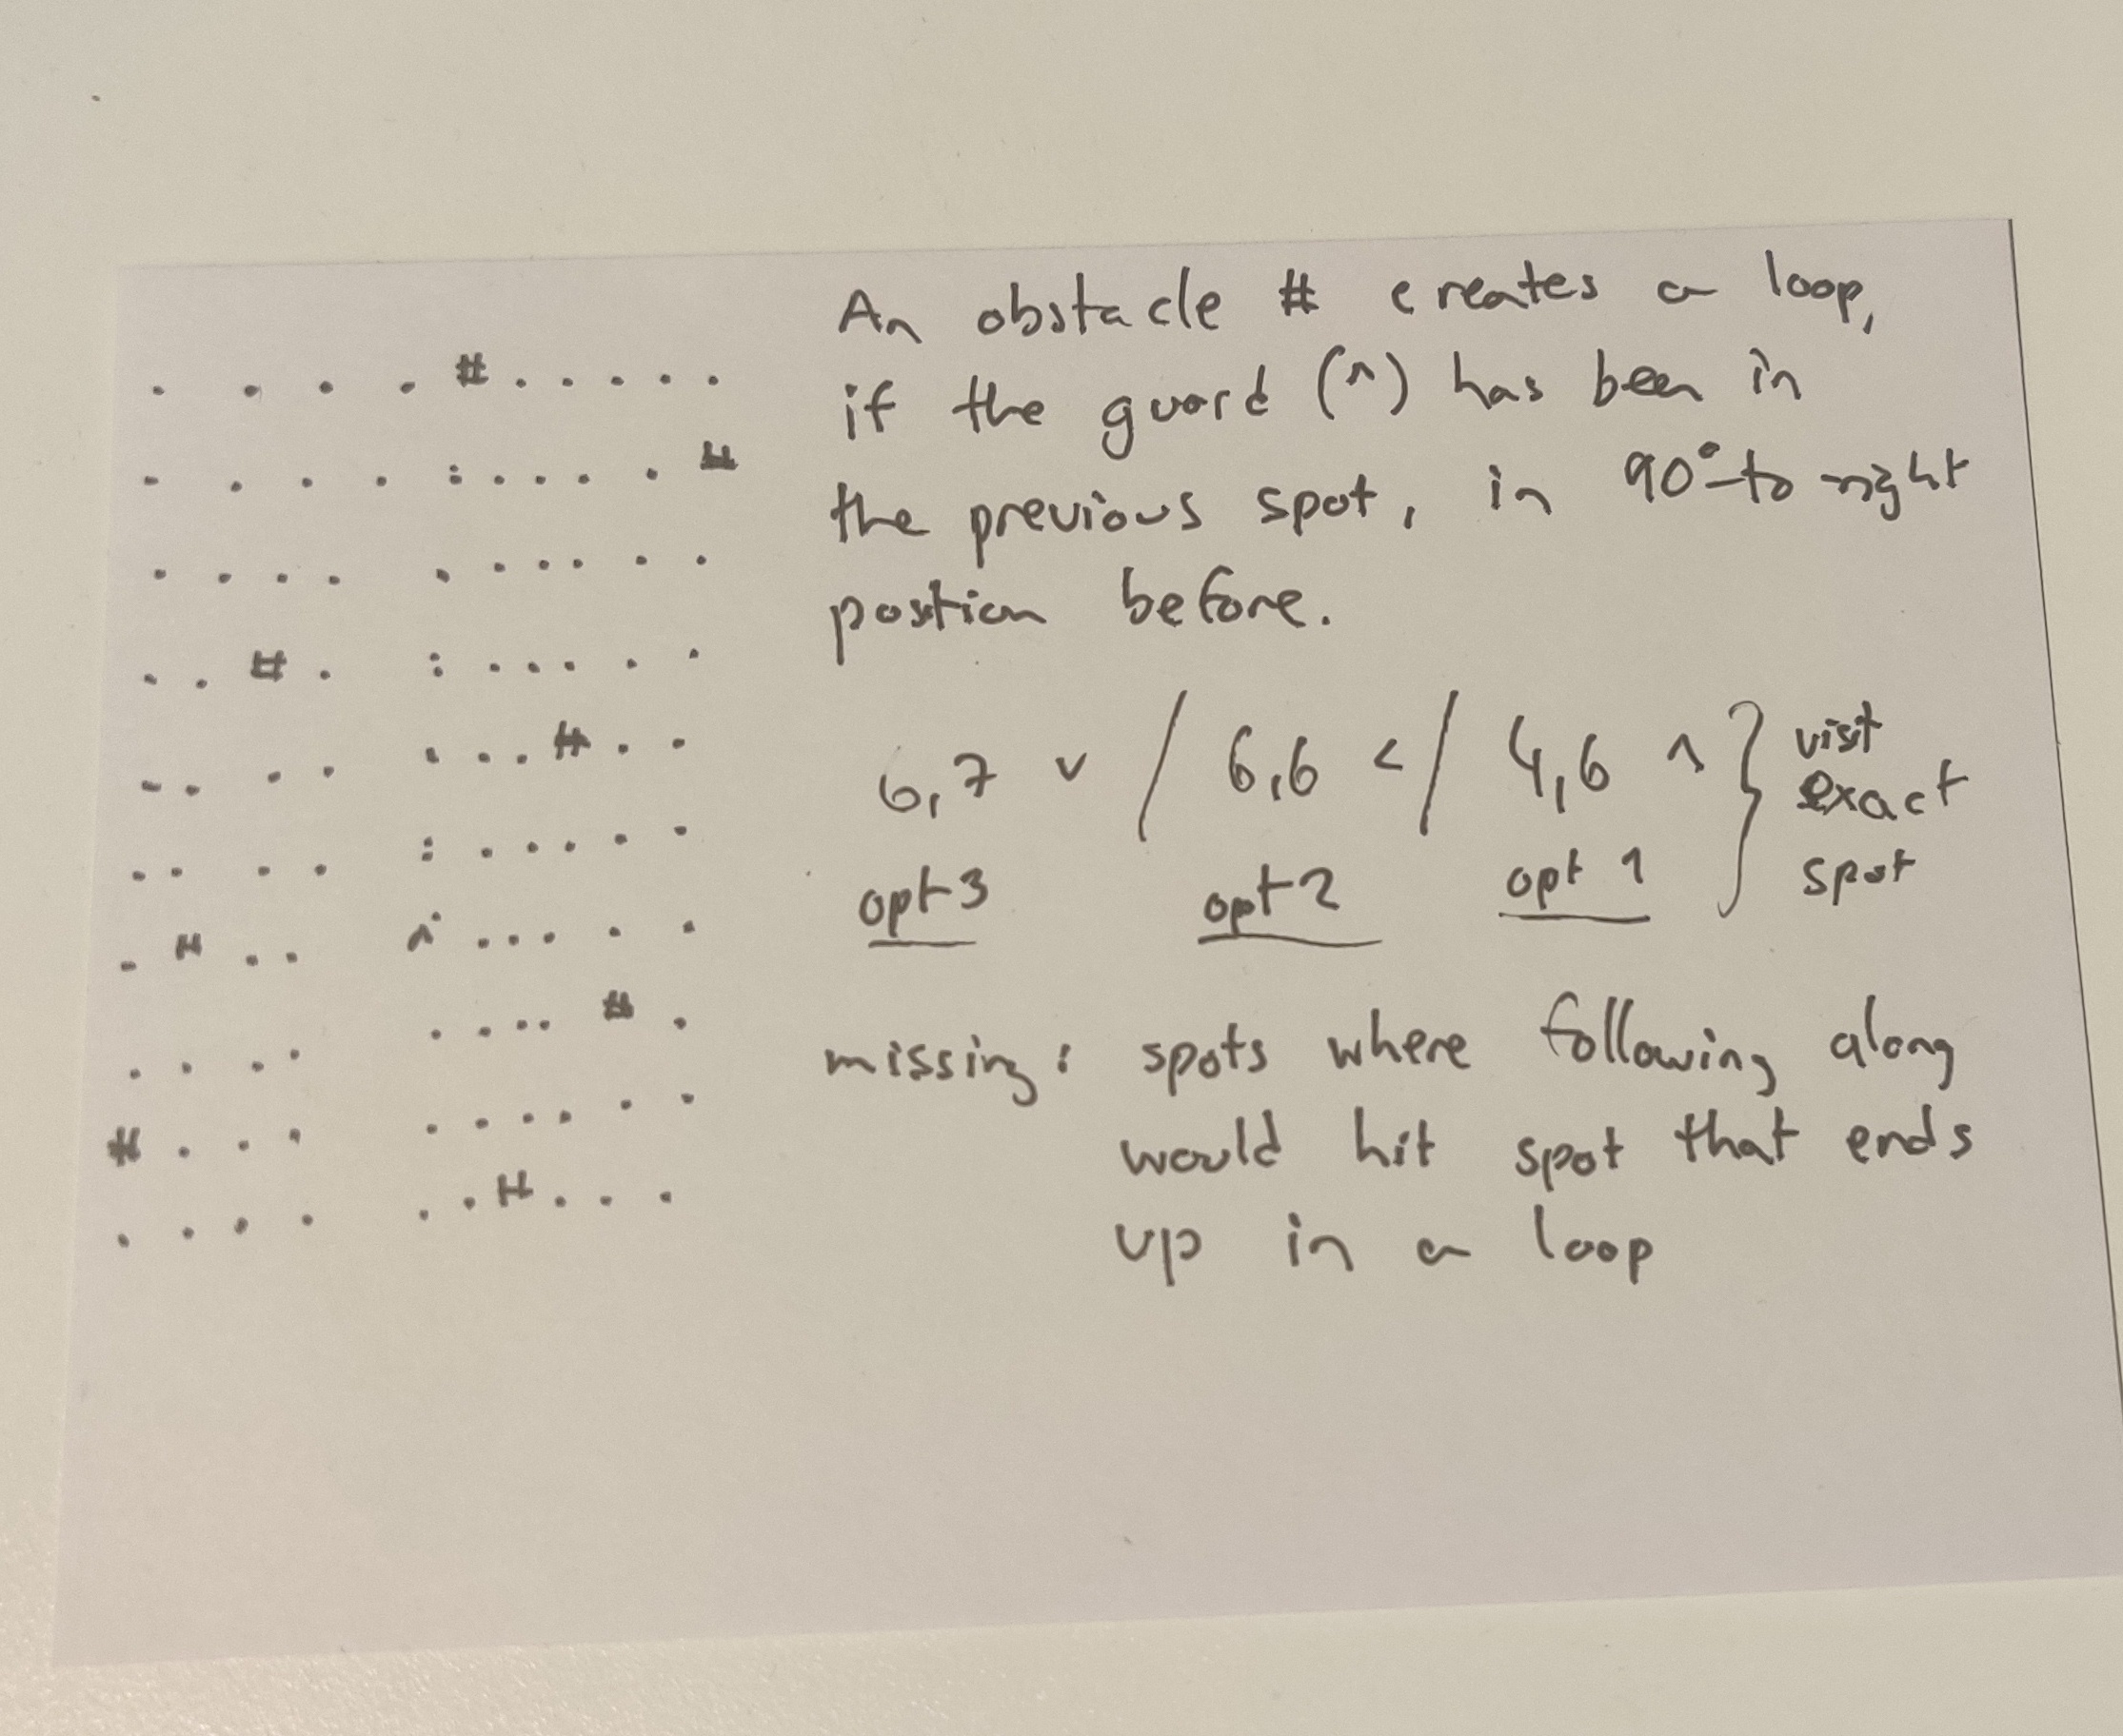 . . . . # . . . . .
. . . . : . . . . #
. . . . . . . . . .
. . # . : . . . . .
. . . . . . . # . .
. . . . : . . . . .
. # . . ^ . . . . .
. . . . . . . . # .
# . . . . . . . . .
. . . . . . # . . .
An obstacle # creates a loop,
if the guard (^) has been in
the previous spot, in 90° to right
postion before.
6,7 v / 6,6 < / 4,6 ^ } visit exact spot
opt 3 opt 2 opt 1
missing: spots where following along
would hit spot that ends
up in a loop